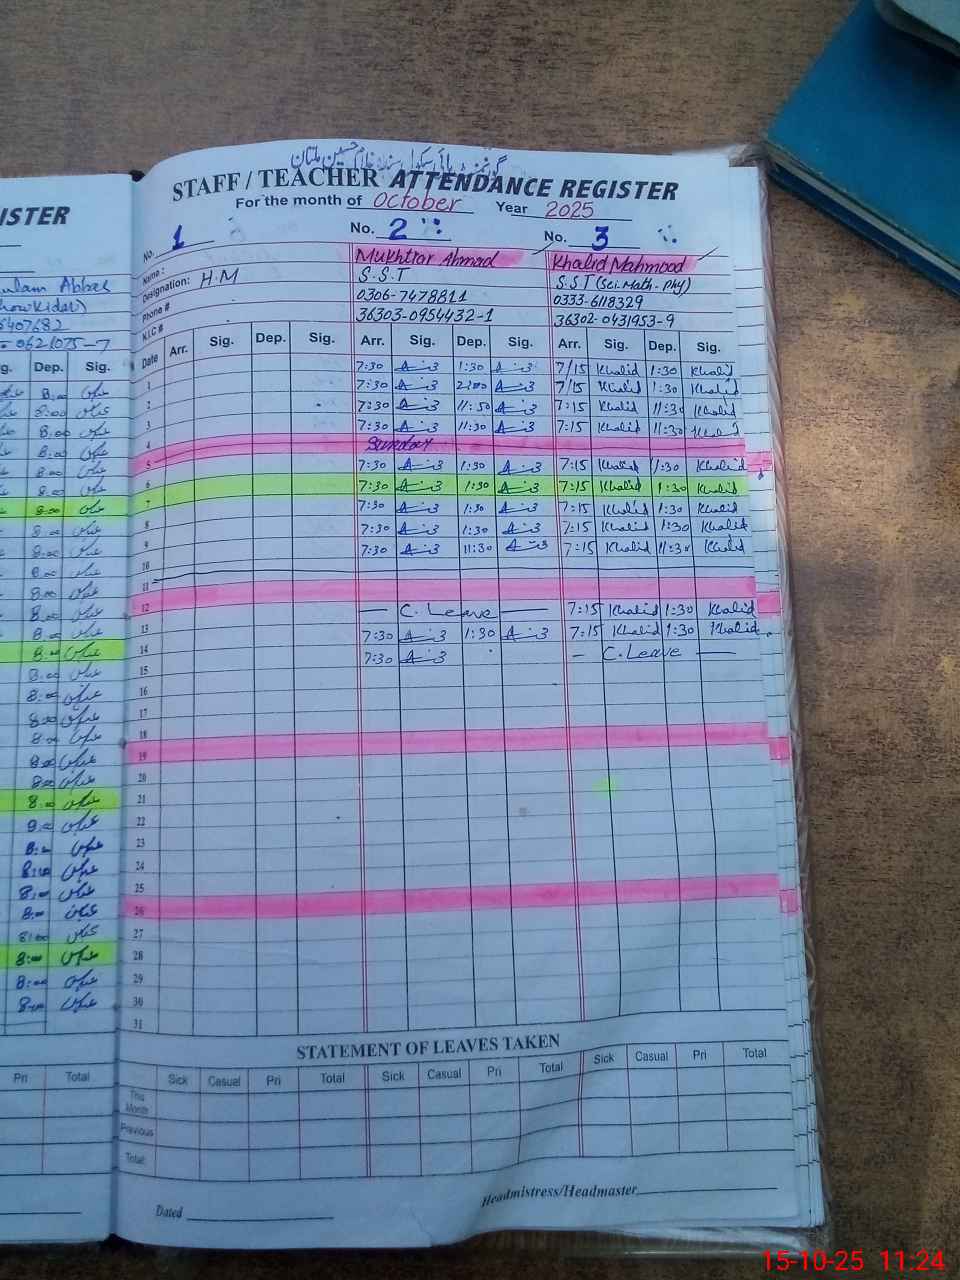 گورنمنٹ ہائی سکول
STAFF / TEACHER ATTENDANCE REGISTER
For the month of October Year 2025
No. 1 No. 2 No. 3
Name : Mukhtrar Ahmad Khalid Mahmood
Designation: H.M S.S.T S.S.T (Sci. Math. Phy)
Phone # 0306-7478811 0333-6118329
N.I.C # 36303-0954432-1 36302-0431953-9
Date Arr. Sig. Dep. Sig. Arr. Sig. Dep. Sig. Arr. Sig. Dep. Sig.
1 7:30 1:30 7/15 Khalid 1:30 Khalid
2 7:30 2:00 7/15 Khalid 1:30 Khalid
3 7:30 11:50 7:15 Khalid 11:30 Khalid
4 7:30 11:30 7:15 Khalid 11:30 Khalid
5 Sunday
6 7:30 1:30 7:15 Khalid 1:30 Khalid
7 7:30 1:30 7:15 Khalid 1:30 Khalid
8 7:30 1:30 7:15 Khalid 1:30 Khalid
9 7:30 1:30 7:15 Khalid 1:30 Khalid
10 7:30 11:30 7:15 Khalid 11:30 Khalid
11
12
13 — C. Leave — 7:15 Khalid 1:30 Khalid
14 7:30 1:30 7:15 Khalid 1:30 Khalid
15 7:30 — C. Leave —
16
17
18
19
20
21
22
23
24
25
26
27
28
29
30
31
STATEMENT OF LEAVES TAKEN
Sick Casual Pri Total Sick Casual Pri Total Sick Casual Pri Total
This Month
Previous
Total:
Dated
Headmistress/Headmaster
ISTER
ulam Abbas
howkidar)
5407682
0621075-7
g. Dep. Sig.
8:00
8:00
8:00
8:00
8:00
8:00
8:00
8:00
8:00
8:00
8:00
8:00
8:00
8:00
8:00
8:00
8:00
8:00
8:00
8:00
8:00
8:00
8:00
8:00
8:00
8:00
8:00
8:00
8:00
8:00
Pri Total
15-10-25 11:24